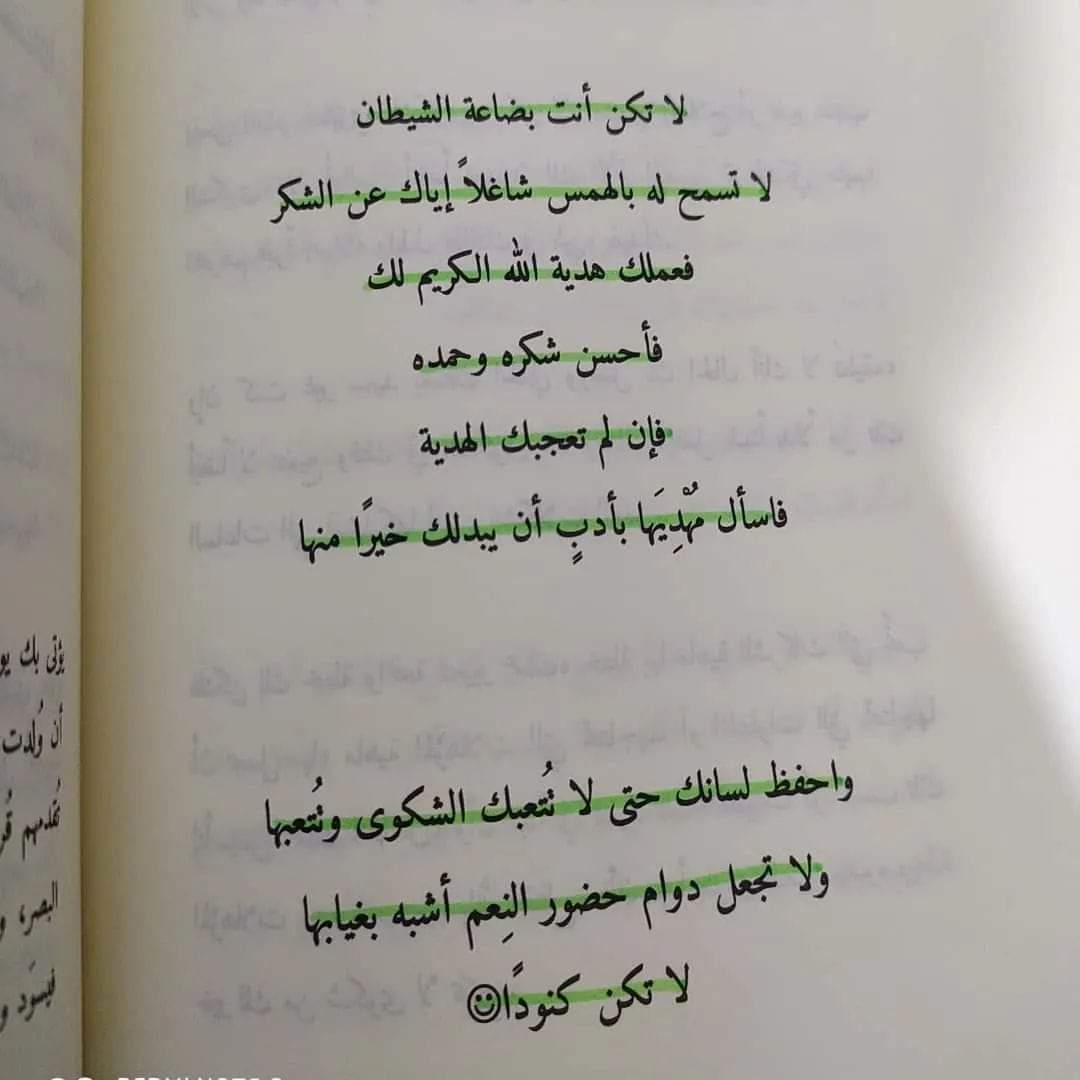 لا تكن أنت بضاعة الشيطان
لا تسمح له بالهمس شاغلاً إياك عن الشكر
فعملك هدية الله الكريم لك
فأحسن شكره وحمده
فإن لم تعجبك الهدية
فاسأل مُهْدِيَها بأدبٍ أن يبدلك خيرًا منها
واحفظ لسانك حتى لا تُتعبك الشكوى وتُتعبها
ولا تجعل دوام حضور النِعم أشبه بغيابها
لا تكن كنودًا☺
يؤتى بك
أن وُلدت
تُقدمهم
البصر، و
فيسود و